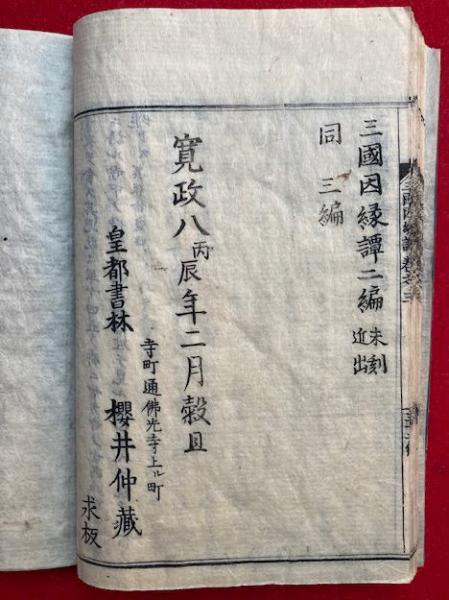 三國因縁譚二編 未刻近出
同 三編
寛政八丙辰年二月穀旦
寺町通佛光寺上ル町
皇都書林 櫻井仲藏
求板